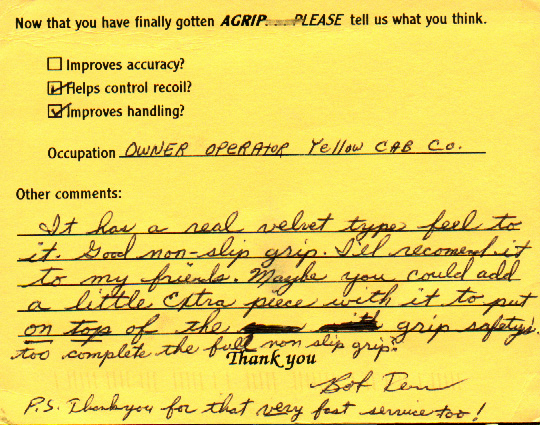 Now that you have finally gotten AGRIP....PLEASE tell us what you think.
Improves accuracy?
Helps control recoil?
Improves handling?
Occupation OWNER OPERATOR Yellow CAB Co.
Other comments:
It has a real velvet type feel to
it. Good non-slip grip. I'll recomend it
to my friends. Maybe you could add
a little Extra piece with it to put
on top of the grip safety's
too complete the full non slip grip?
Thank you
Bob
P.S. Thankyou for that very fast service too!